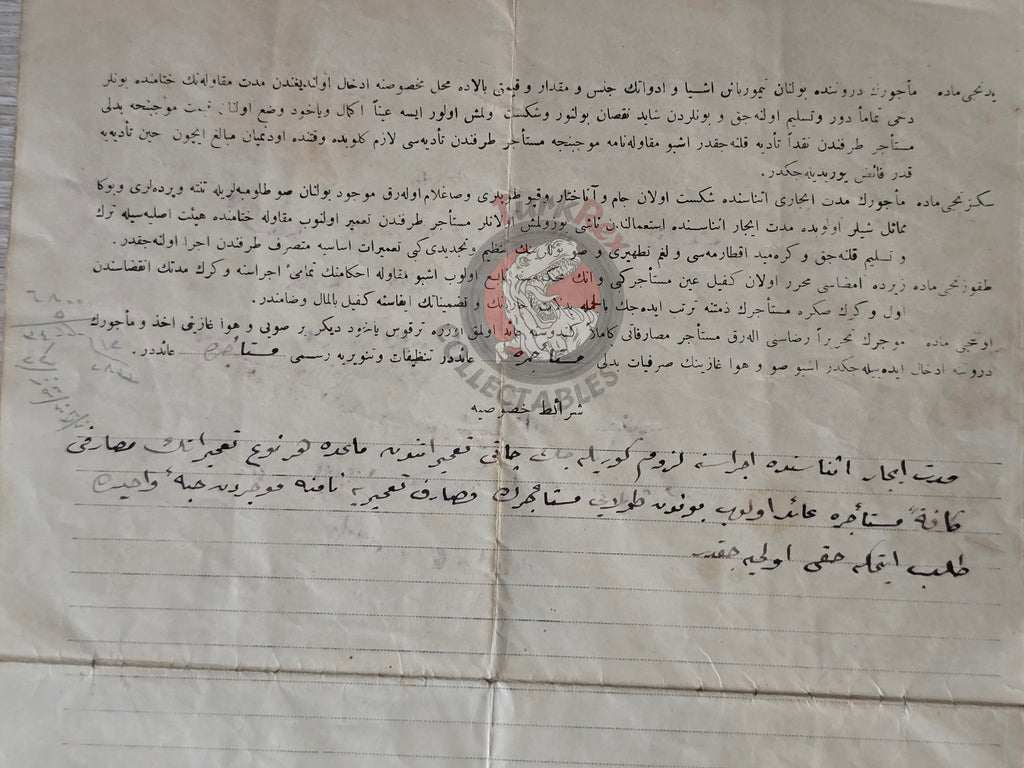 يدنجی ماده مأجورك دروننده بولنان تيمورباش اشيا و ادواتك جنس و مقدار و قيمتی بالاده محل مخصوصنه ادخال اولنديغندن مدت مقاوله‌نك ختامنده بونلر
دخی تماماً دور و تسليم اولنه‌جق و بونلردن شايد نقصان بولنور وشكست اولمش اولور ايسه عيناً اكمال وياخود وضع اولنان قيمت موجبنجه بدلی
مستأجر طرفندن نقداً تأديه قلنه‌جقدر اشبو مقاوله‌نامه موجبنجه مستأجر طرفندن تأديه‌سی لازم كلوبده وقتنده اودنميان مبالغ ايچون حين تأديه‌يه
قدر فائض يوريديله‌جكدر.
سكزنجی ماده مأجورك مدت ايجاری اثناسنده شكست اولان جام و آناختار وقپو طوپلری وصاغلام اوله‌رق موجود بولنان صو طلومبه‌لريله تنته وپرده‌لری وبوكا
مماثل شيلر اولوبده مدت ايجار اثناسنده استعمالندن ناشی بوزولمش اولانلر مستأجر طرفندن تعمير اولنوب مقاوله ختامنده هيئت اصليه‌سيله ترك
و تسليم قلنه‌جق و كره‌ميد اقطارمه‌سی و لغم تطهيری و صو يوللرينك تنظيم وتجديدی كبی تعميرات اساسيه متصرف طرفندن اجرا اولنه‌جقدر.
طقوزنجی ماده زيرده امضاسی محرر اولان كفيل عين مستأجر كبی و انك تابع اولوب اشبو مقاوله احكامنك تمامئ اجراسنه و كرك مدتك انقضاسندن
اول و كرك صكره مستأجرك ذمتنه ترتب ايده‌جك بالجمله و تضميناتك ايفاسنه كفيل بالمال وضامندر.
اونجی ماده موجرك تحريراً رضاسنی اله‌رق مستأجر مصارفاتی كاملاً كندوسنه عائد اولمق اوزره ترقوس ياخود ديكر بر صويی و هوا غازينی اخذ و مأجورك
دروننه ادخال ايده‌بيله‌جكدر اشبو صو و هوا غازينك صرفيات بدلی مستأجره عائددر تنظيفات وتنويريه رسمی مستأجره عائددر.
شرائط خصوصيه
مدت ايجار اثناسنده اجراسنه لزوم كوريله‌جك چاتی تعميراتندن ماعدا هر نوع تعميراتك مصارفی
كافةً مستأجره عائد اولوب بوندن طولايی مستأجرك مصارف تعميريه نامنه موجردن حبهٔ واحده
طلب ايتمكه حقی اولميه‌جقدر